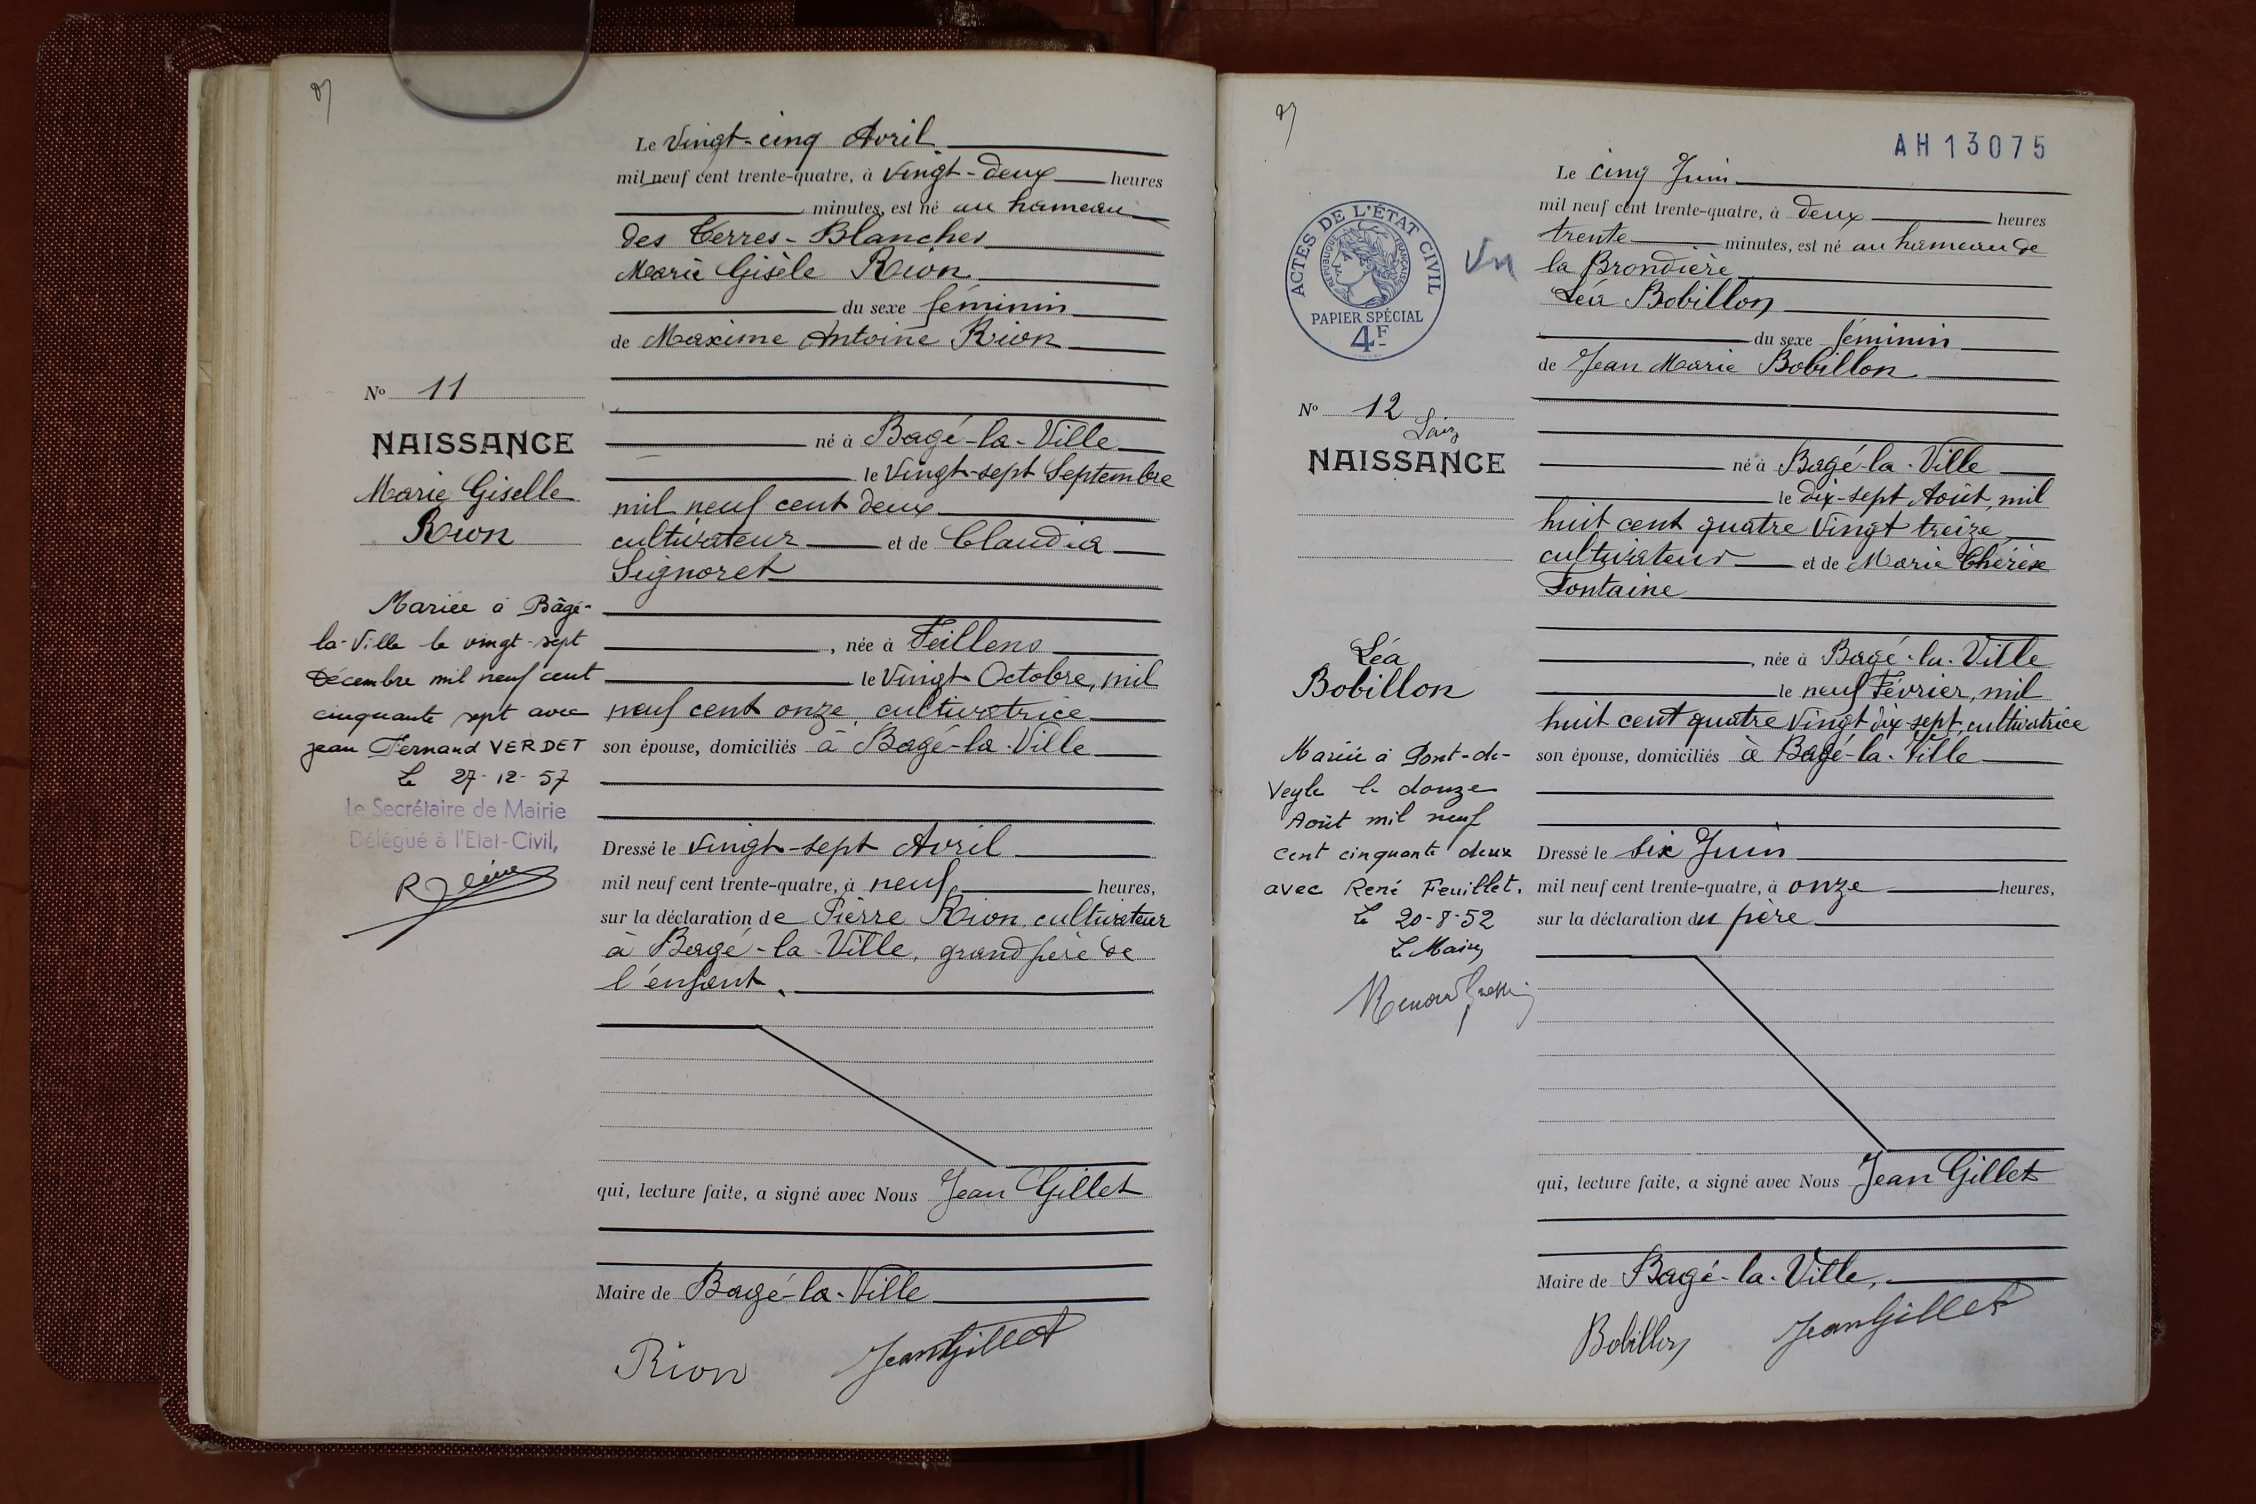 Le Vingt-cinq Avril
mil neuf cent trente-quatre, à Vingt-deux heures
minutes, est né au hameau
des Terres-Blanches
Marie Gisèle Rion
du sexe féminin
de Maxime Antoine Rion
né à Bagé-la-Ville
le Vingt-sept Septembre
mil neuf cent deux
cultivateur et de Claudia
Signoret
née à Feillens
le Vingt Octobre, mil
neuf cent onze, cultivatrice
son épouse, domiciliés à Bagé-la-Ville
Dressé le Vingt-sept Avril
mil neuf cent trente-quatre, à neuf heures,
sur la déclaration de Pierre Rion, cultivateur
à Bagé-la-Ville, grand père de
l'enfant.
qui, lecture faite, a signé avec Nous Jean Gillet
Maire de Bagé-la-Ville
Rion JeanGillet
No 11
NAISSANCE
Marie Giselle
Rion
Mariée à Bâgé-
la-Ville le vingt-sept
Décembre mil neuf cent
cinquante sept avec
jean Fernand VERDET
Le 27-12-57
Le Secrétaire de Mairie
Délégué à l'Etat-Civil,
AH 13075
Le cinq Juin
mil neuf cent trente-quatre, à deux heures
trente minutes, est né au hameau de
la Brondière
Léa Bobillon
du sexe féminin
de Jean Marie Bobillon
né à Bagé-la-Ville
le dix-sept Août, mil
huit cent quatre Vingt treize
cultivateur et de Marie Thérèse
Fontaine
, née à Bagé-la-Ville
le neuf Février, mil
huit cent quatre Vingt dix-sept, cultivatrice
son épouse, domiciliés à Bagé-la-Ville
Dressé le six Juin
mil neuf cent trente-quatre, à onze heures,
sur la déclaration du père
qui, lecture faite, a signé avec Nous Jean Gillet
Maire de Bagé-la-Ville,
Bobillon JeanGillet
ACTES DE L'ÉTAT CIVIL
RÉPUBLIQUE FRANÇAISE
PAPIER SPÉCIAL
4F
Vu
No 12
NAISSANCE
Léa
Bobillon
Mariée à Pont-de-
Veyle le douze
Août mil neuf
cent cinquante deux
avec René Feuillet.
Le 20-8-52
Le Maire